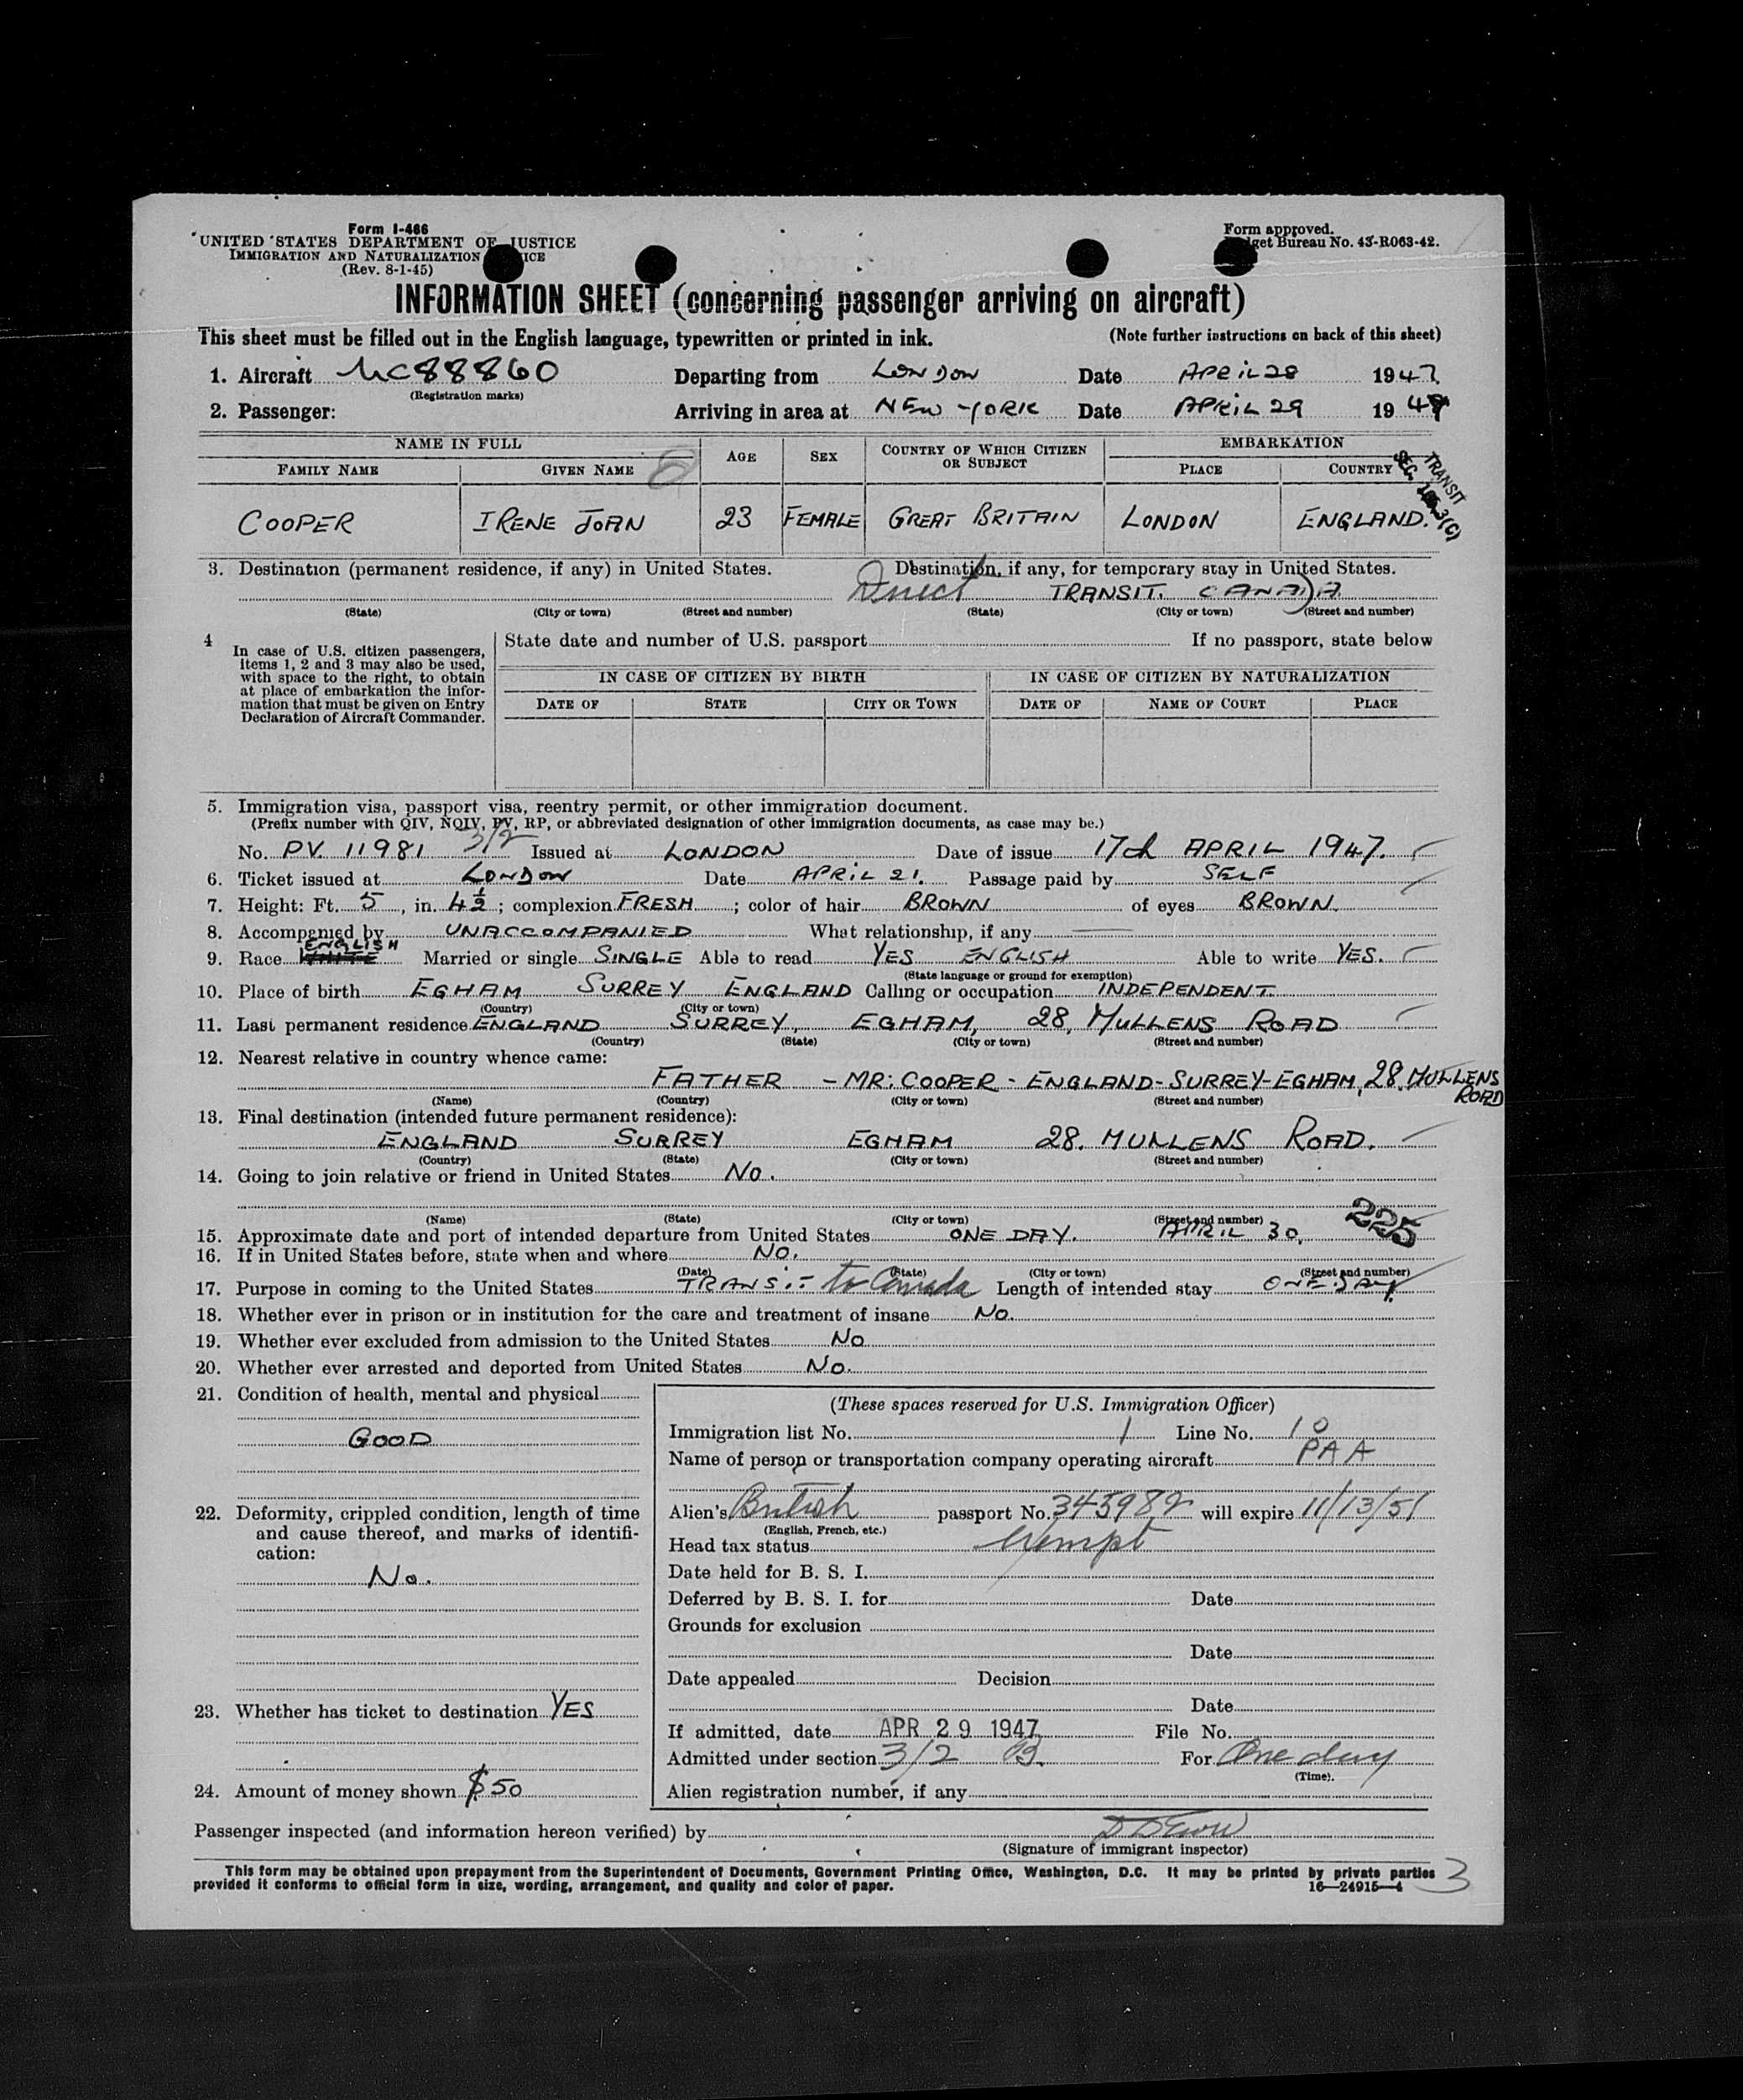 Form I-466
UNITED STATES DEPARTMENT OF JUSTICE
IMMIGRATION AND NATURALIZATION
(Rev. 8-1-45)
Form approved.
Budget Bureau No. 43-R063-42.
INFORMATION SHEET (concerning passenger arriving on aircraft)
This sheet must be filled out in the English language, typewritten or printed in ink. (Note further instructions on back of this sheet)
1. Aircraft NC88860 Departing from LONDON Date APRIL 28 1947
(Registration marks)
2. Passenger: Arriving in area at NEW-YORK Date APRIL 29 1947
NAME IN FULL AGE SEX COUNTRY OF WHICH CITIZEN OR SUBJECT EMBARKATION
FAMILY NAME GIVEN NAME PLACE COUNTRY
TRANSIT
COOPER IRENE JOAN 23 FEMALE GREAT BRITAIN LONDON ENGLAND.
3. Destination (permanent residence, if any) in United States. Destination, if any, for temporary stay in United States.
Direct TRANSIT. CANADA
(State) (City or town) (Street and number) (State) (City or town) (Street and number)
4 In case of U.S. citizen passengers, items 1, 2 and 3 may also be used, with space to the right, to obtain at place of embarkation the information that must be given on Entry Declaration of Aircraft Commander.
State date and number of U.S. passport If no passport, state below
IN CASE OF CITIZEN BY BIRTH IN CASE OF CITIZEN BY NATURALIZATION
DATE OF STATE CITY OR TOWN DATE OF NAME OF COURT PLACE
5. Immigration visa, passport visa, reentry permit, or other immigration document.
(Prefix number with QIV, NQIV, PV, RP, or abbreviated designation of other immigration documents, as case may be.)
No. PV. 11981 3/2 Issued at LONDON Date of issue 17th APRIL 1947.
6. Ticket issued at LONDON Date APRIL 21. Passage paid by SELF
7. Height: Ft. 5, in. 4½; complexion FRESH; color of hair BROWN of eyes BROWN.
8. Accompanied by UNACCOMPANIED What relationship, if any
9. Race WHITE ENGLISH Married or single SINGLE Able to read YES ENGLISH Able to write YES.
(State language or ground for exemption)
10. Place of birth EGHAM SURREY ENGLAND Calling or occupation INDEPENDENT.
(Country) (City or town)
11. Last permanent residence ENGLAND SURREY, EGHAM, 28, MULLENS ROAD
(Country) (State) (City or town) (Street and number)
12. Nearest relative in country whence came:
FATHER - MR: COOPER - ENGLAND-SURREY-EGHAM, 28. MULLENS ROAD
(Name) (Country) (City or town) (Street and number)
13. Final destination (intended future permanent residence):
ENGLAND SURREY EGHAM 28. MULLENS ROAD.
(Country) (State) (City or town) (Street and number)
14. Going to join relative or friend in United States No.
225
(Name) (State) (City or town) (Street and number)
15. Approximate date and port of intended departure from United States ONE DAY. APRIL 30.
16. If in United States before, state when and where NO.
(Date) (State) (City or town) (Street and number)
17. Purpose in coming to the United States TRANSIT to Canada Length of intended stay ONE DAY.
18. Whether ever in prison or in institution for the care and treatment of insane No.
19. Whether ever excluded from admission to the United States No
20. Whether ever arrested and deported from United States No.
21. Condition of health, mental and physical
GOOD
22. Deformity, crippled condition, length of time and cause thereof, and marks of identification:
No.
23. Whether has ticket to destination YES
24. Amount of money shown $50
(These spaces reserved for U.S. Immigration Officer)
Immigration list No. 1 Line No. 10
Name of person or transportation company operating aircraft PAA
Alien's British passport No. 345982 will expire 11/13/51
(English, French, etc.)
Head tax status Exempt
Date held for B. S. I.
Deferred by B. S. I. for Date
Grounds for exclusion
Date
Date appealed Decision
Date
If admitted, date APR 29 1947 File No.
Admitted under section 3/2 B. For One day
(Time).
Alien registration number, if any
Passenger inspected (and information hereon verified) by
(Signature of immigrant inspector)
This form may be obtained upon prepayment from the Superintendent of Documents, Government Printing Office, Washington, D.C. It may be printed by private parties
provided it conforms to official form in size, wording, arrangement, and quality and color of paper. 16—24915-4
3